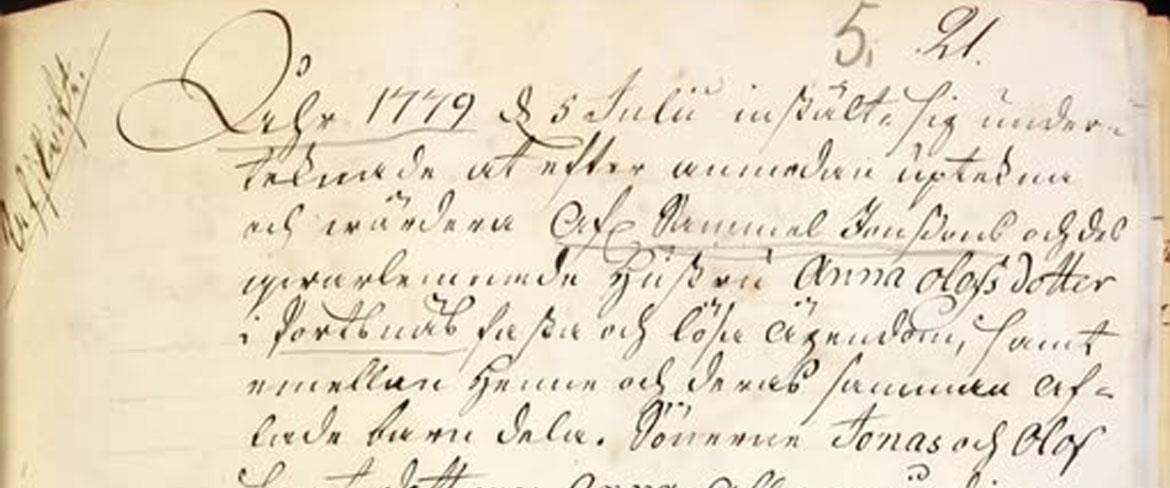 5. 21.
Afskrift.
Åhr 1779 d 5 Julii instälte sig under-
teknade at efter anmodan uptekna
och wärdera Afl. Sammel Jonssons och des
qwarlemnade Hustru Anna Olofsdotter
i Portsnäs fasta och lösa Ägendom, samt
emellan Henne och deras samman af-
lade barn dela. Sönerne Jonas och Olof